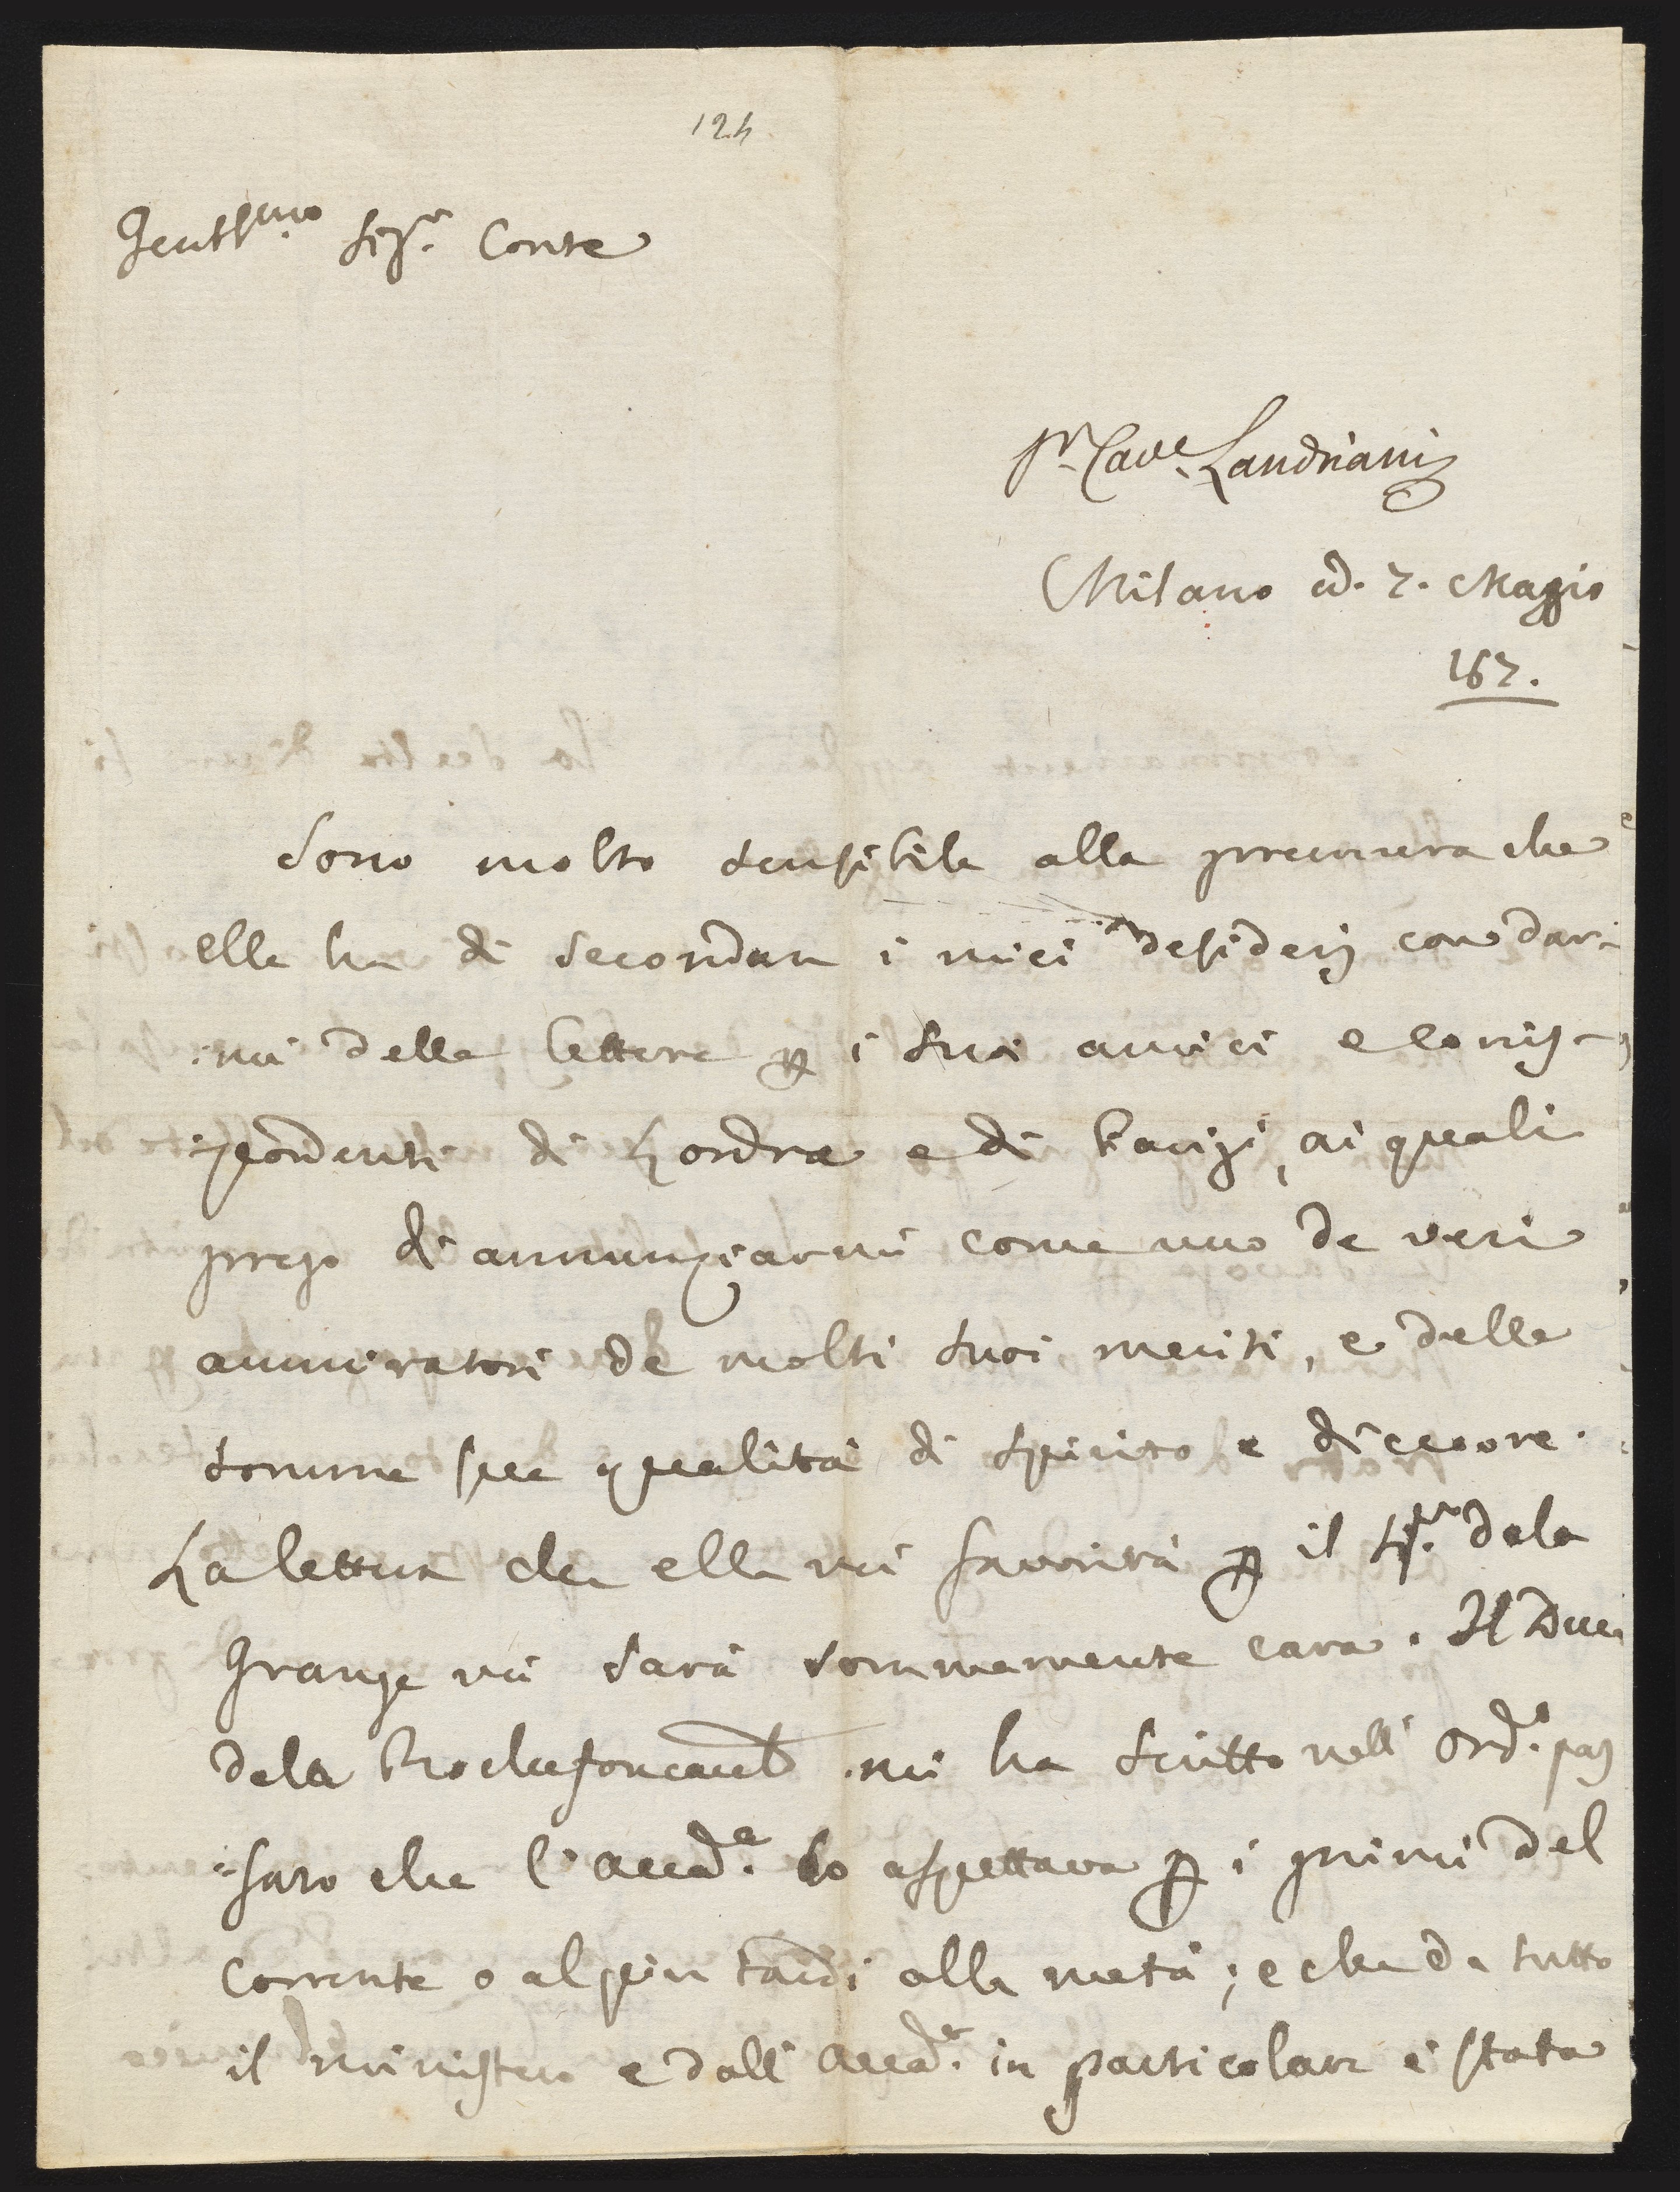 124
Gentmo Sigr. Conte
Sr. Cave. Landriani
Milano ad. 7. Maggio
167.
Sono molto sensibile alla premura che
ella ha di secondare i miei desiderj con dar-
mi delle lettere p i suoi amici e corris-
pondenti di Londra e di Parigi, ai quali
prego di annunziarmi come uno de veri
ammiratori de molti suoi meriti, e delle
somme sue qualità di spirito e di cuore.
La lettera che ella mi favorirà p il Sigr. de la
Grange mi sarà sommamente cara. Il Duca
de la Rochefoucault mi ha scritto nell' Ord.o pas-
sato che l'accad.a lo aspettava p i primi del
Corrente o al più tardi alla metà; e che da tutto
il ministero e dall' accad.a in particolare è stata